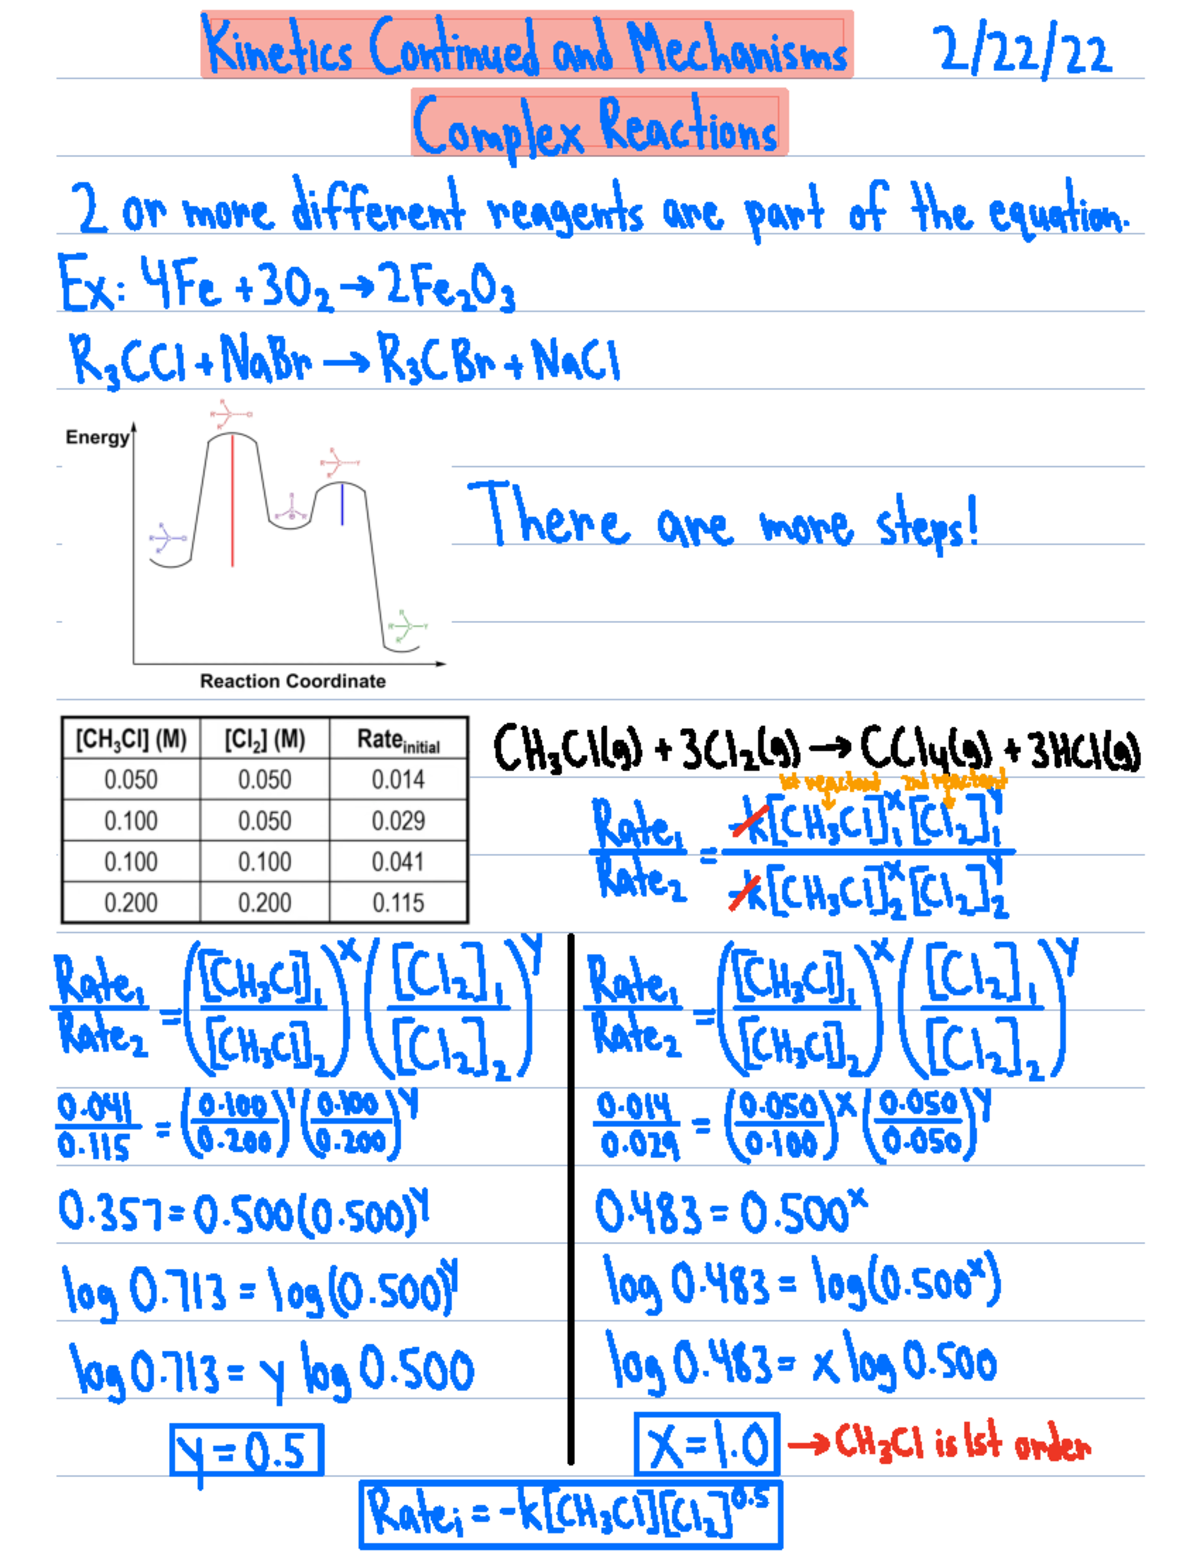 Kinetics Continued and Mechanisms 2/22/22
Complex Reactions
2 or more different reagents are part of the equation.
Ex: 4Fe + 3O₂ → 2Fe₂O₃
R₃CCl + NaBr → R₃CBr + NaCl
Energy
There are more steps!
Reaction Coordinate
[CH₃Cl] (M) [Cl₂] (M) Rate_initial
0.050 0.050 0.014
0.100 0.050 0.029
0.100 0.100 0.041
0.200 0.200 0.115
CH₃Cl(g) + 3Cl₂(g) → CCl₄(g) + 3HCl(g)
1st reactant 2nd reactant
Rate₁/Rate₂ = -k[CH₃Cl]₁ˣ[Cl₂]₁ʸ / -k[CH₃Cl]₂ˣ[Cl₂]₂ʸ
Rate₁/Rate₂ = ([CH₃Cl]₁/[CH₃Cl]₂)ˣ ([Cl₂]₁/[Cl₂]₂)ʸ
0.041/0.115 = (0.100/0.200)¹ (0.100/0.200)ʸ
0.357 = 0.500(0.500)ʸ
log 0.713 = log(0.500)ʸ
log 0.713 = y log 0.500
y = 0.5
Rate₁/Rate₂ = ([CH₃Cl]₁/[CH₃Cl]₂)ˣ ([Cl₂]₁/[Cl₂]₂)ʸ
0.014/0.029 = (0.050/0.100)ˣ (0.050/0.050)ʸ
0.483 = 0.500ˣ
log 0.483 = log(0.500ˣ)
log 0.483 = x log 0.500
X = 1.0 → CH₃Cl is 1st order
Rateᵢ = -k[CH₃Cl][Cl₂]⁰·⁵